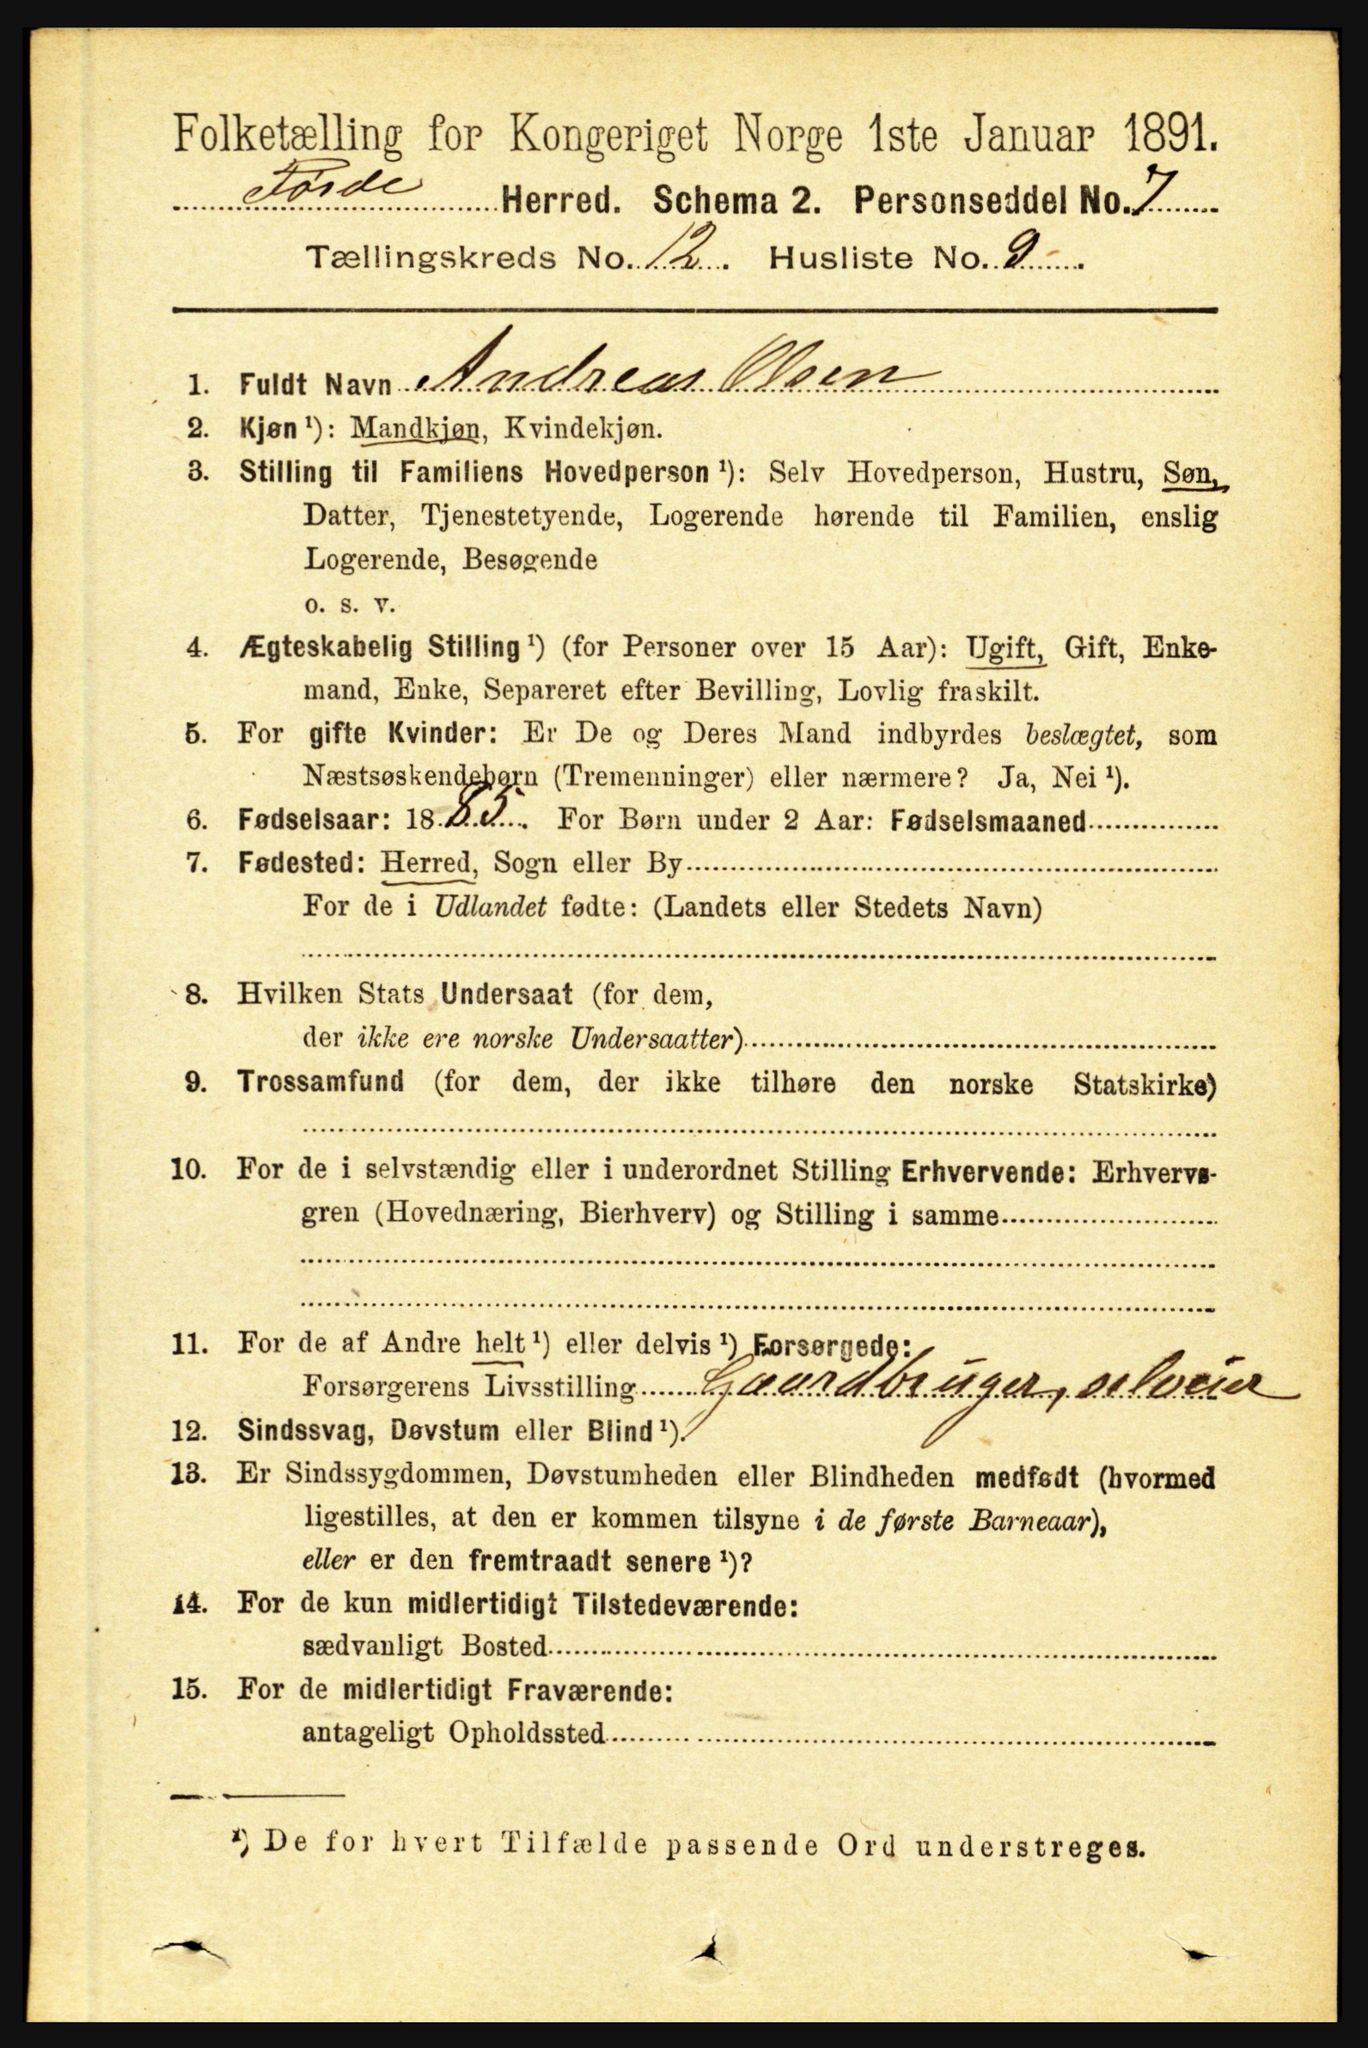 Folketælling for Kongeriget Norge 1ste Januar 1891.
Førde Herred. Schema 2. Personseddel No. 7
Tællingskreds No. 12. Husliste No. 9
1. Fuldt Navn Andreas Olsen
2. Kjøn ¹): Mandkjøn, Kvindekjøn.
3. Stilling til Familiens Hovedperson ¹): Selv Hovedperson, Hustru, Søn,
Datter, Tjenestetyende, Logerende hørende til Familien, enslig
Logerende, Besøgende
o. s. v.
4. Ægteskabelig Stilling ¹) (for Personer over 15 Aar): Ugift, Gift, Enke-
mand, Enke, Separeret efter Bevilling, Lovlig fraskilt.
5. For gifte Kvinder: Er De og Deres Mand indbyrdes beslægtet, som
Næstsøskendebørn (Tremenninger) eller nærmere? Ja, Nei ¹).
6. Fødselsaar: 1885. For Børn under 2 Aar: Fødselsmaaned
7. Fødested: Herred, Sogn eller By
For de i Udlandet fødte: (Landets eller Stedets Navn)
8. Hvilken Stats Undersaat (for dem,
der ikke ere norske Undersaatter)
9. Trossamfund (for dem, der ikke tilhøre den norske Statskirke)
10. For de i selvstændig eller i underordnet Stilling Erhvervende: Erhvervs-
gren (Hovednæring, Bierhverv) og Stilling i samme
11. For de af Andre helt ¹) eller delvis ¹) Forsørgede:
Forsørgerens Livsstilling Gaardbruger, selveier
12. Sindssvag, Døvstum eller Blind ¹).
13. Er Sindssygdommen, Døvstumheden eller Blindheden medfødt (hvormed
ligestilles, at den er kommen tilsyne i de første Barneaar),
eller er den fremtraadt senere ¹)?
14. For de kun midlertidigt Tilstedeværende:
sædvanligt Bosted
15. For de midlertidigt Fraværende:
antageligt Opholdssted
¹) De for hvert Tilfælde passende Ord understreges.